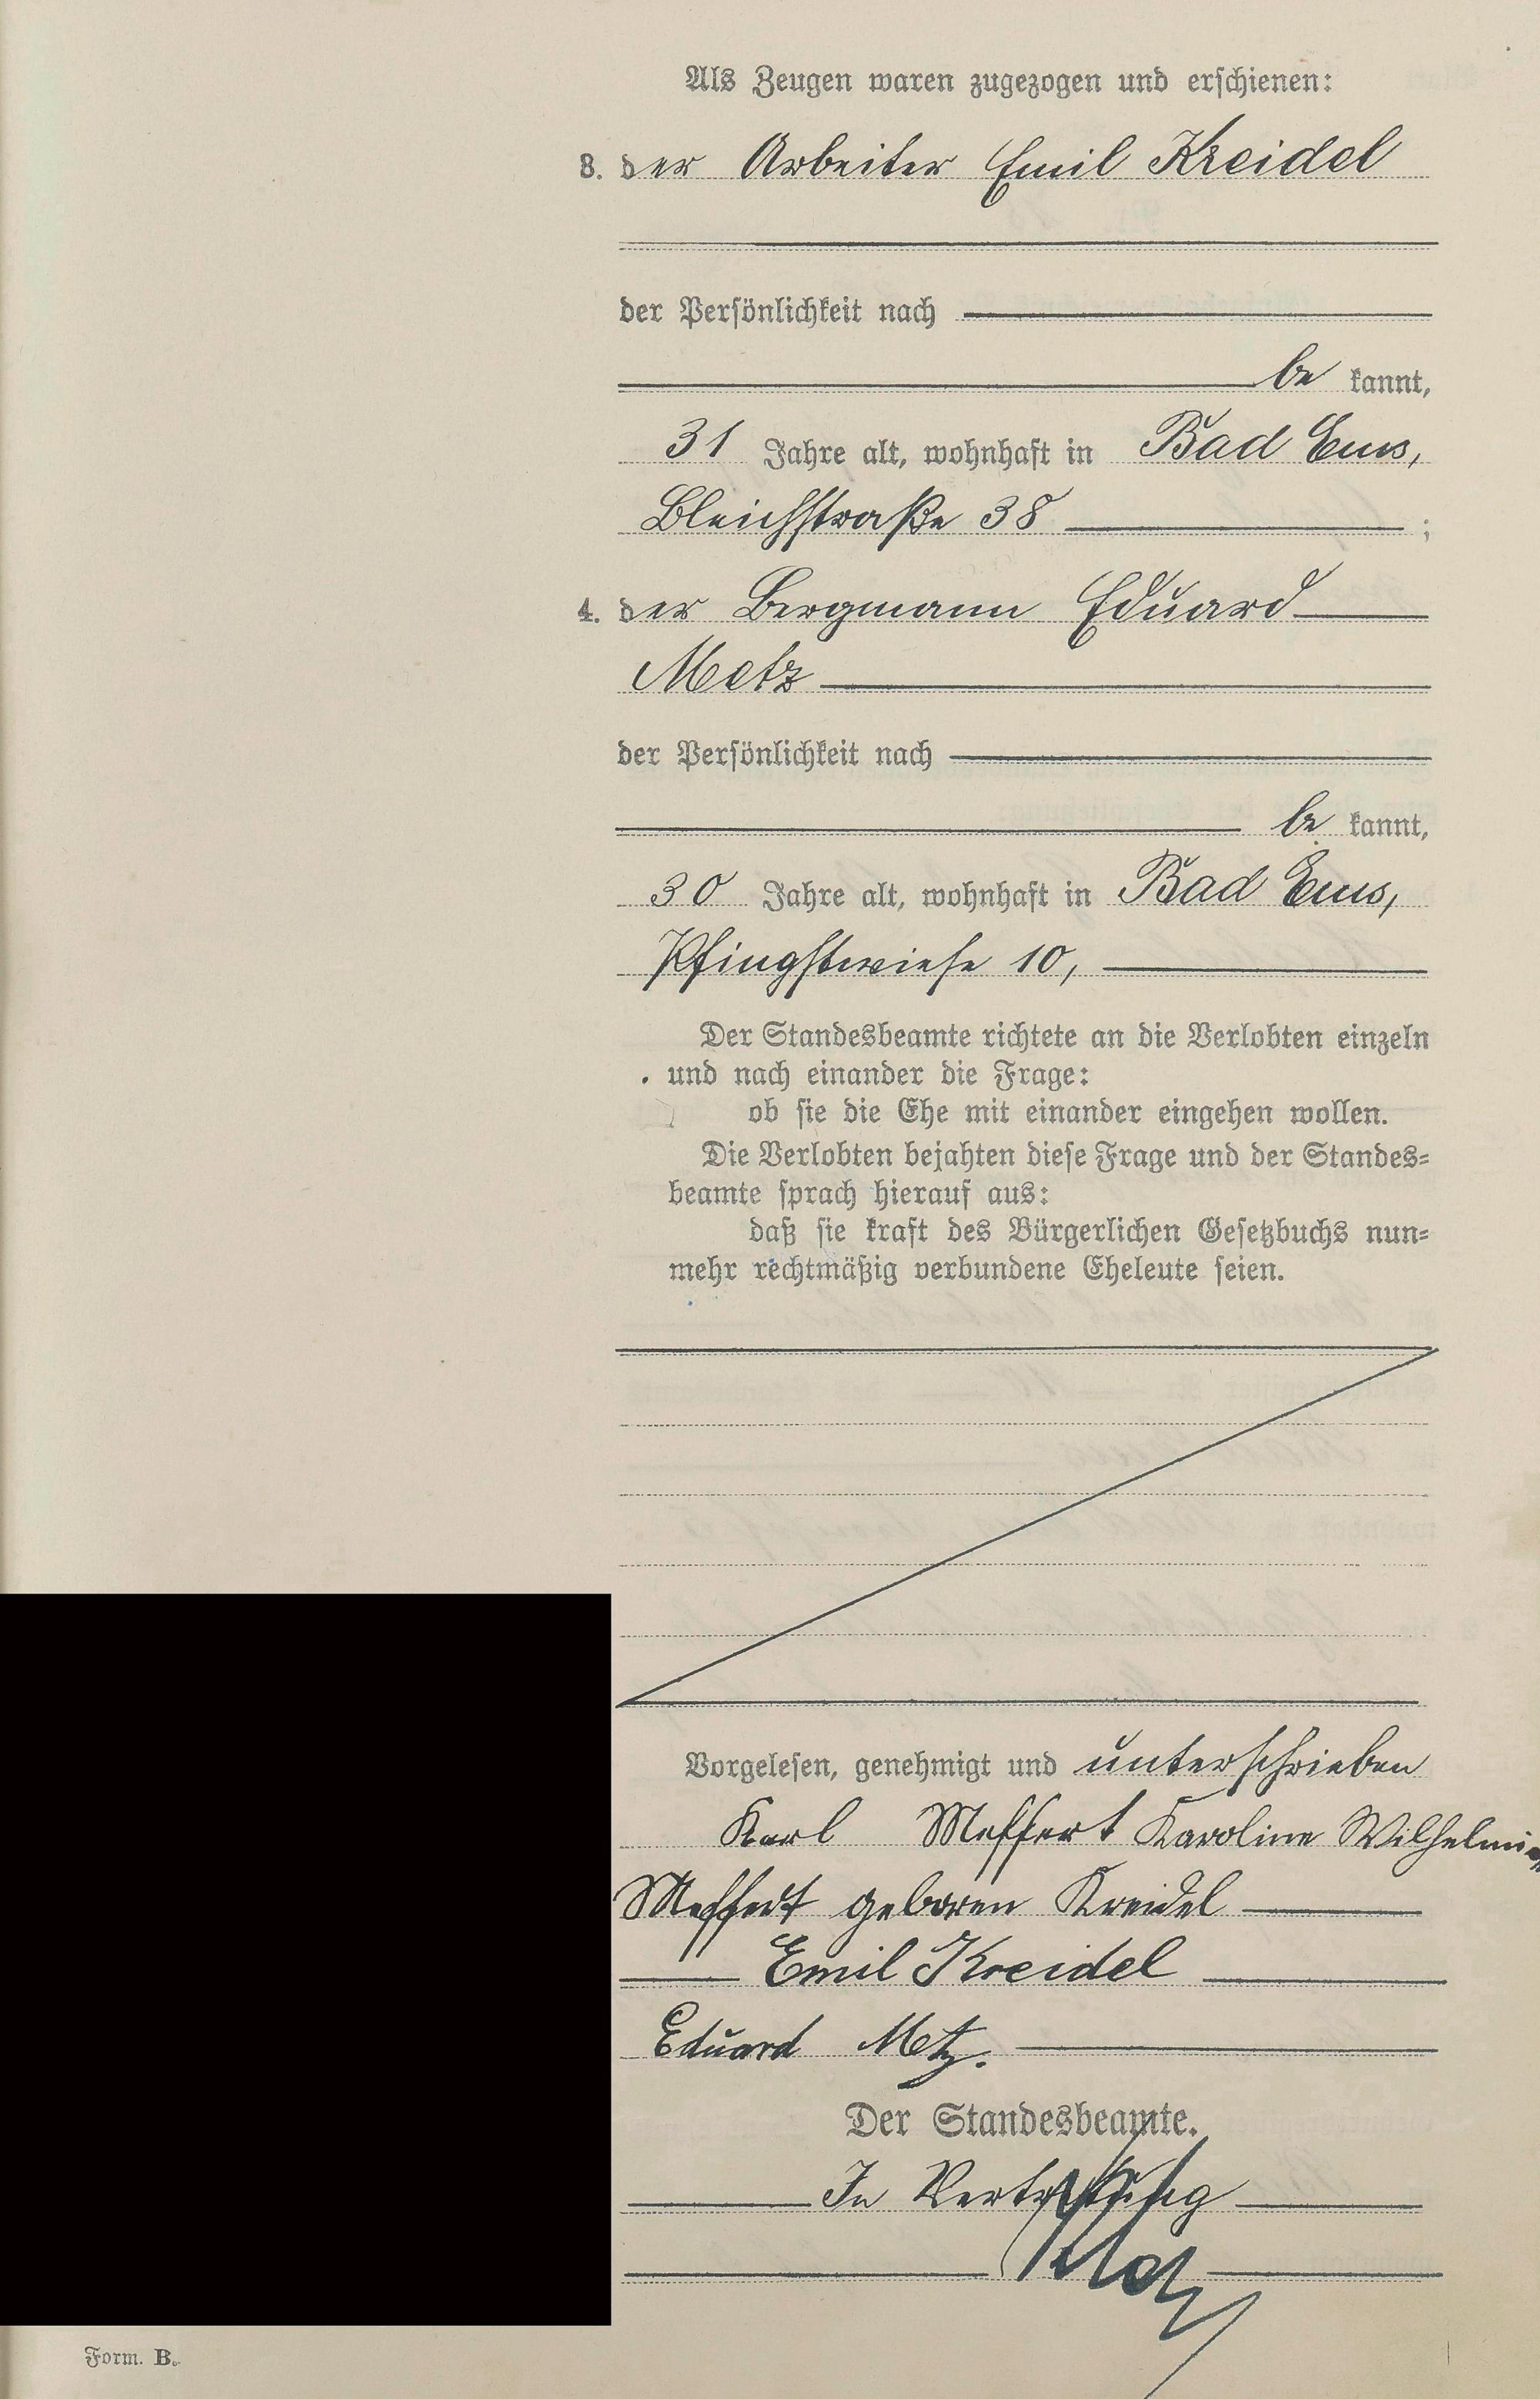 Als Zeugen waren zugezogen und erschienen:
3. der Arbeiter Emil Kreidel
der Persönlichkeit nach
be kannt,
31 Jahre alt, wohnhaft in Bad Ems,
Bleichstraße 38 ;
4. der Bergmann Eduard
Metz
der Persönlichkeit nach
be kannt,
30 Jahre alt, wohnhaft in Bad Ems,
Pfingstwiese 10,
Der Standesbeamte richtete an die Verlobten einzeln
und nach einander die Frage:
ob sie die Ehe mit einander eingehen wollen.
Die Verlobten bejahten diese Frage und der Standes-
beamte sprach hierauf aus:
daß sie kraft des Bürgerlichen Gesetzbuchs nun-
mehr rechtmäßig verbundene Eheleute seien.
Vorgelesen, genehmigt und unterschrieben
Karl Meffert Karoline Wilhelmine
Meffert geboren Kreidel
Emil Kreidel
Eduard Metz.
Der Standesbeamte.
In Vertretung
Form. B.